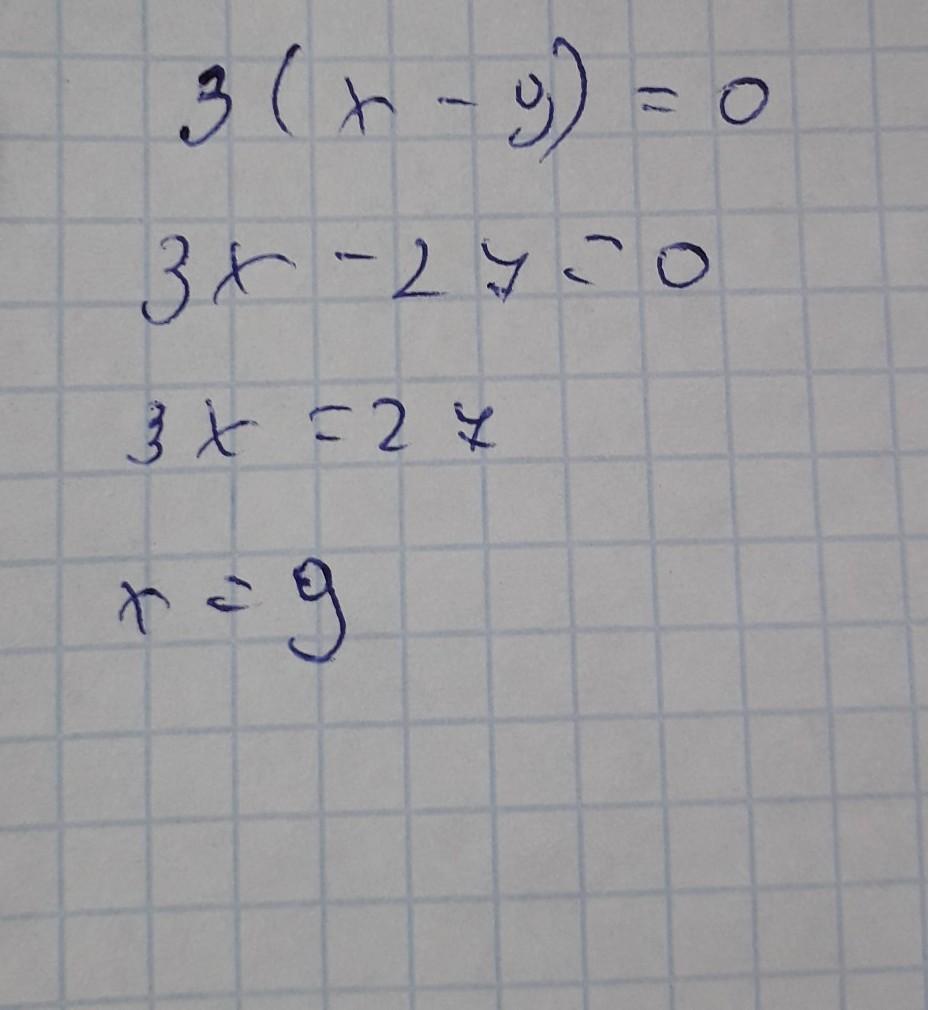 3(x - 9) = 0
3x - 27 = 0
3x = 27
x = 9